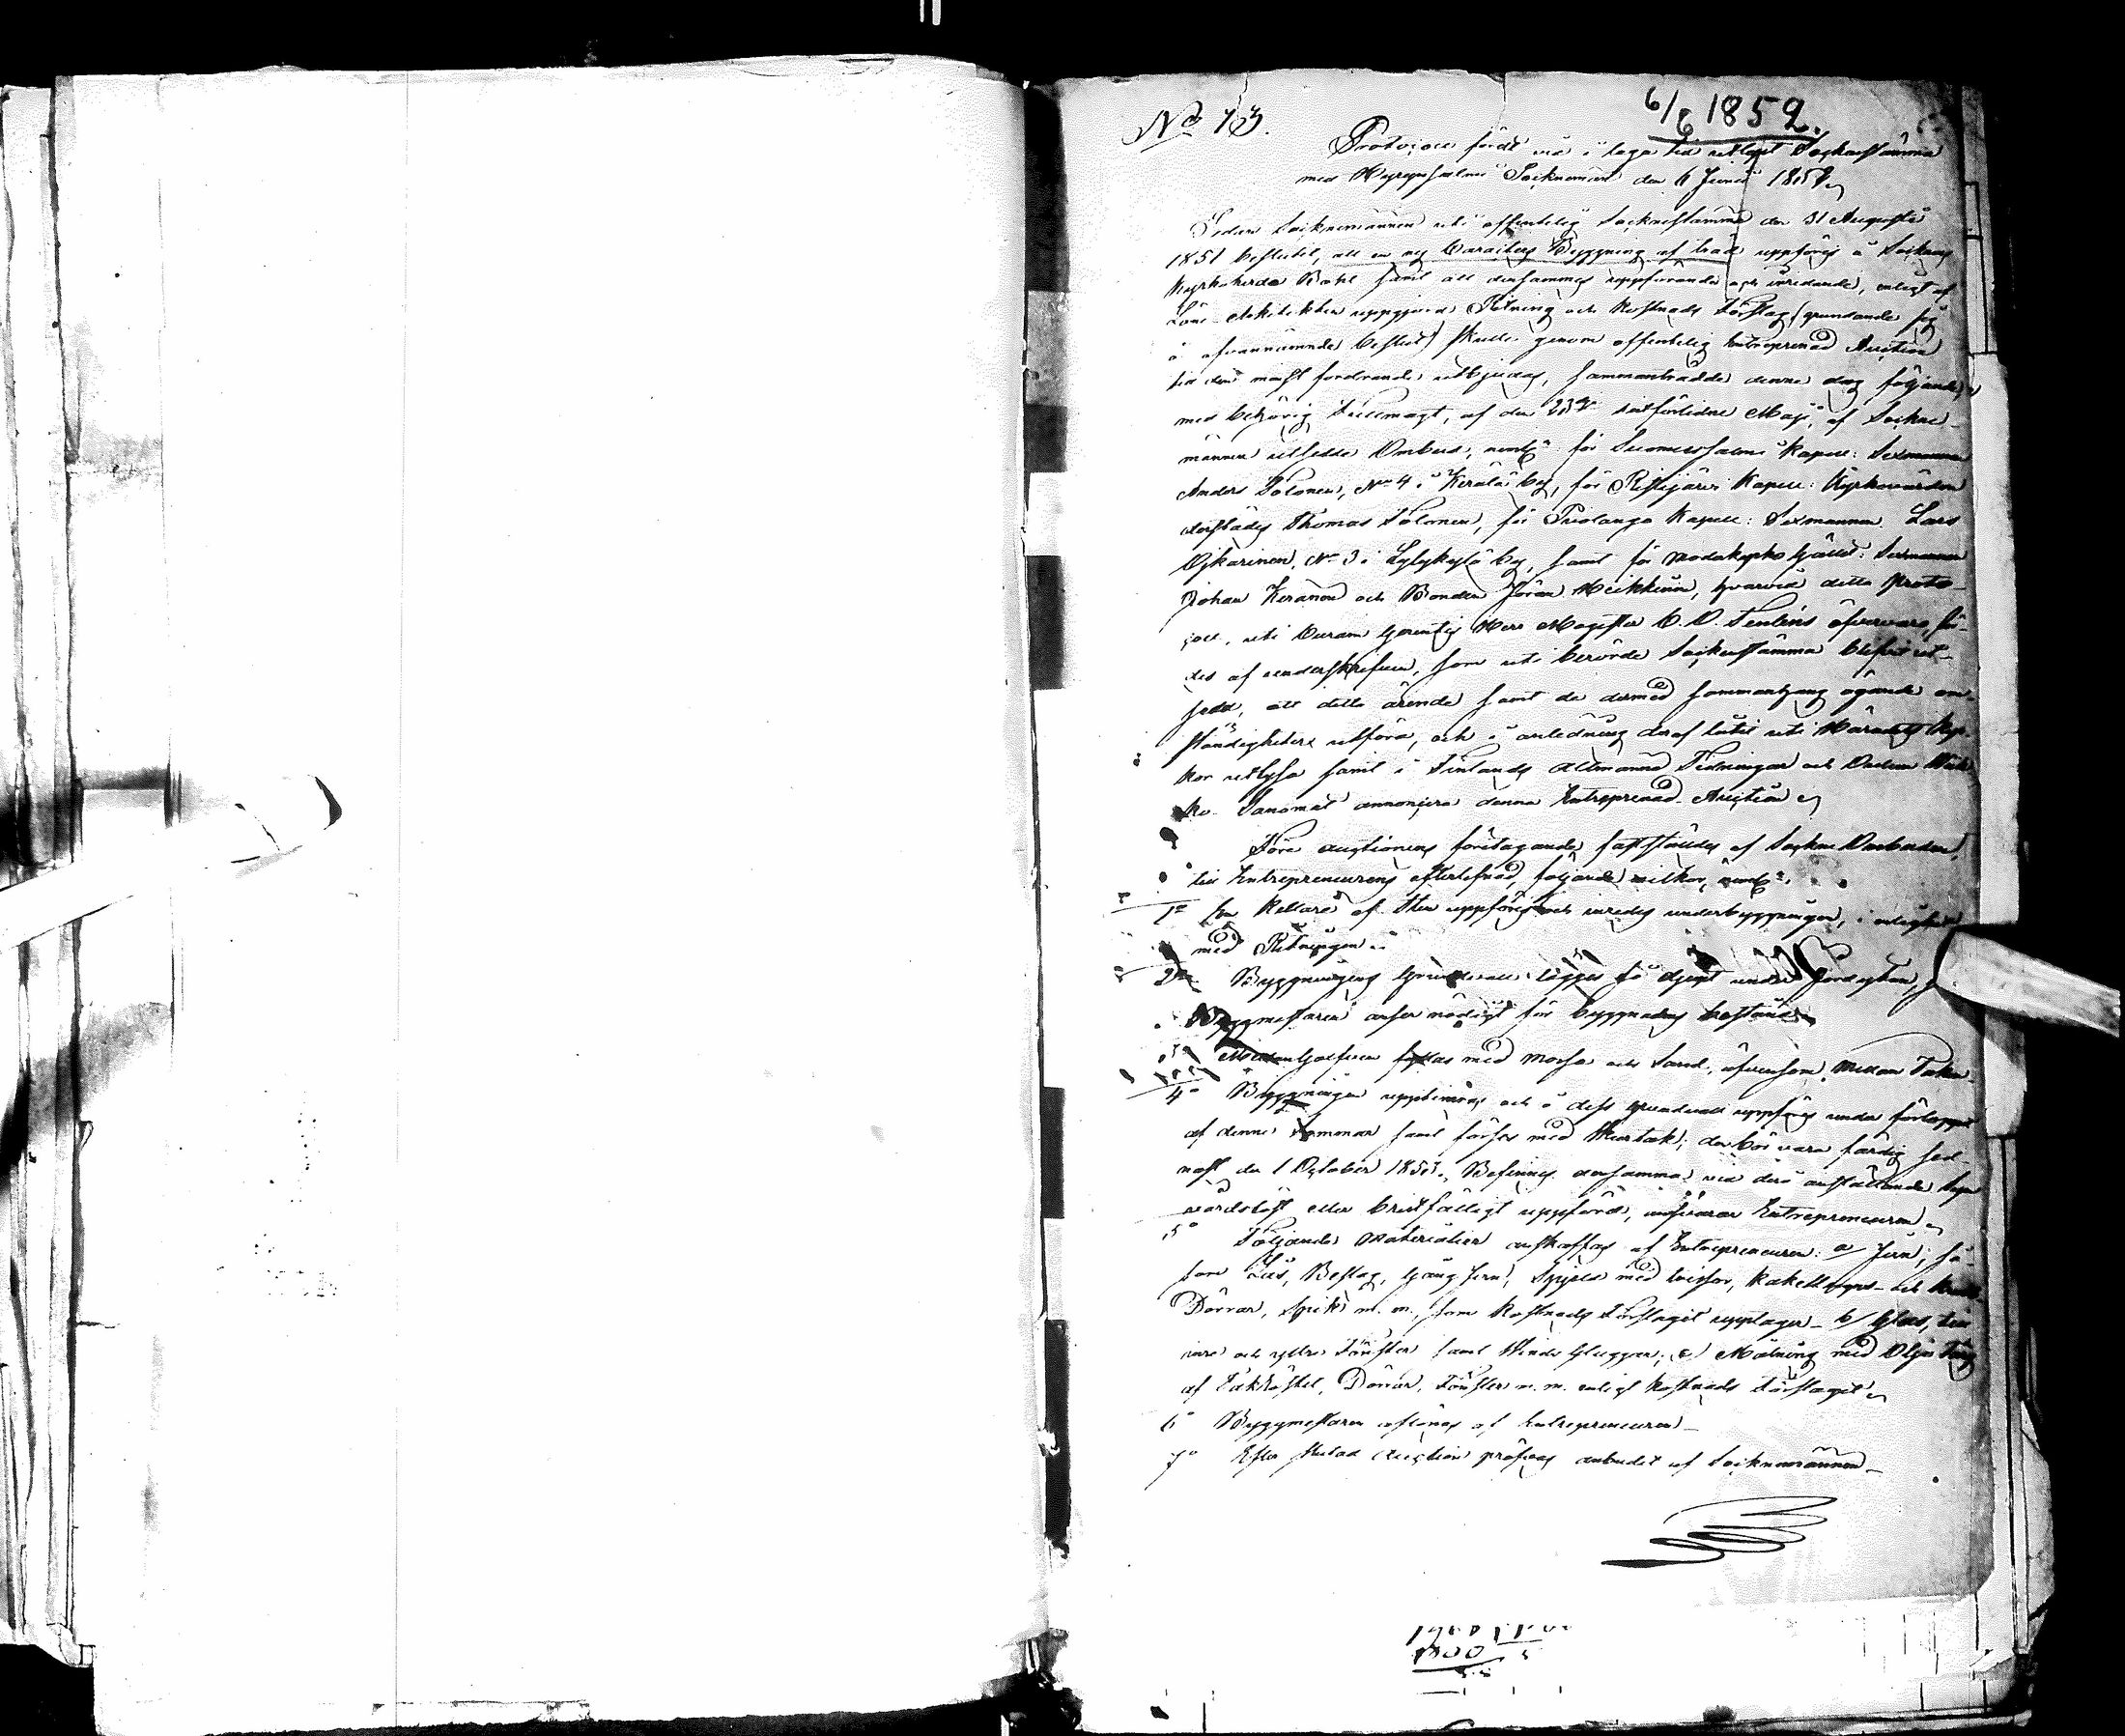 No 13.
6/6 1852.
Protocoll fördt vid i laga tid utlyst Sockenstämma
med Hyrynsalmi Sockneman den 6 Junii 1852
Sedan Socknemännen uti offentelig Sockenstämma den 31 Augusti
1851 beslutit, att en ny Caracters Byggning af träd uppföres å Sockens
Kyrkoherde Bohl samt att densammes uppförande och inredande, enligt af
Läns-Arkitekten uppgjord Ritning och Kostnads Förslag (grundande sig
å ofvannämnde beslut) skulle genom offentelig Entreprenad Auction
till den minst fordrande utbjudas, sammanträdde denne dag följande
med behörig Fullmagt, af den 23 sistförlidne Maji, af Sockne-
männen utsedde Ombud, neml. för Suomussalmi Kapell: Sexmannen
Anders Tolonen, No 4 i Kerälä by, för Ristijärvi Kapell: Kyrkovärden
derstädes Thomas Tolonen, för Puolango Kapell: Sexmannen Lars
Ojkarinen, No 3 i Lylykylä by, samt för Moderkyrko : Sexmannen
Johan Keränen och Bonden Jöran Heikkinen, hvarvid detta Proto-
coll, uti Herr Magister C. O. öfvervaro, för-
des af underskrifven, som uti berörde Sockenstämma blifvit ut-
sedd, att detta ärende samt de dermed sammanhang ägande om-
ständigheter utföra, och i anledning deraf låtit uti Häradets Kyr-
kor utlysa samt i Finlands Allmänna Tidningar och Oulun Wiik-
ko-Sanomat annoncera denna Entreprenad-Auction
Före auctionens företagande fastställdes af Sockne Ombuden,
till Entrepreneurens efterlefnad, följande vilkor, neml.
1o En Källare af sten uppföres och inredes under byggningen, i enlighet
med Ritningen
2o Byggningens Grundvall lägges så djupt under jordytan,
Byggmästaren anser nödigt för byggnadens bestånd
3o Mellan Golfven fyllas med Mossa och Sand, äfvensom Mellan Taken
4o Byggningen upptimras och å dess grundvall uppföres under förloppet
af denne sommar samt förses med tak; den bör vara färdig sed-
nast den 1 October 1853. Befinnes densamma vid derå anställande Syn
vårdslöst eller bristfälligt uppförd, ansvarar Entrepreneuren
5o Följande Materialier anskaffas af Entrepreneuren: a/ Jern, så-
som Lås, Beslag, Gångjern, Spjeld med Kakelugns- och
Dörrar, Spik m. m., som Kostnads Förslaget upptager - b/ Glas, till
inre och yttre Fönster samt Winds Gluggar; c/ Målning med Olje Färg
af , Dörrar, Fönster m. m. enligt Kostnads Förslaget
6o Byggmästaren aflönas af Entrepreneuren -
7o Efter slutad Auction pröfvas anbudet af Socknemännen -